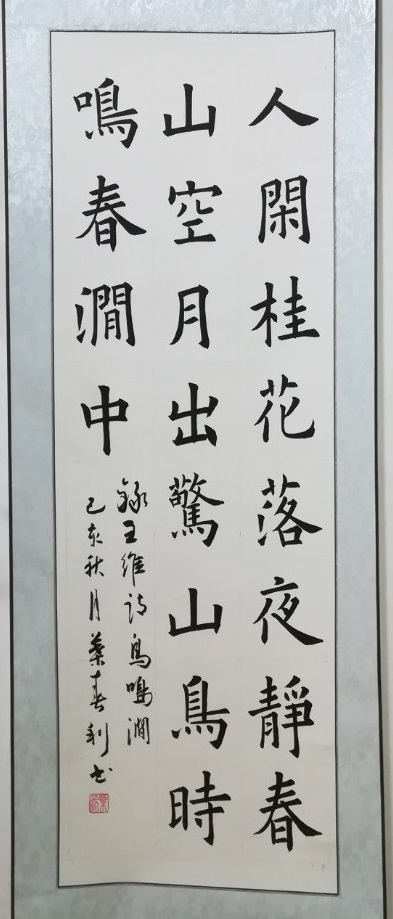 人閑桂花落夜靜春
山空月出驚山鳥時
鳴春澗中
錄王維詩鳥鳴澗
己亥秋月葉春利書